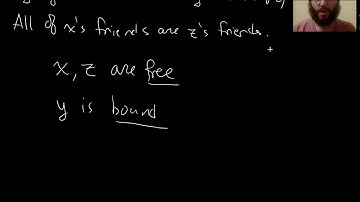 All of x's friends are z's friends.
x, z are free
y is bound